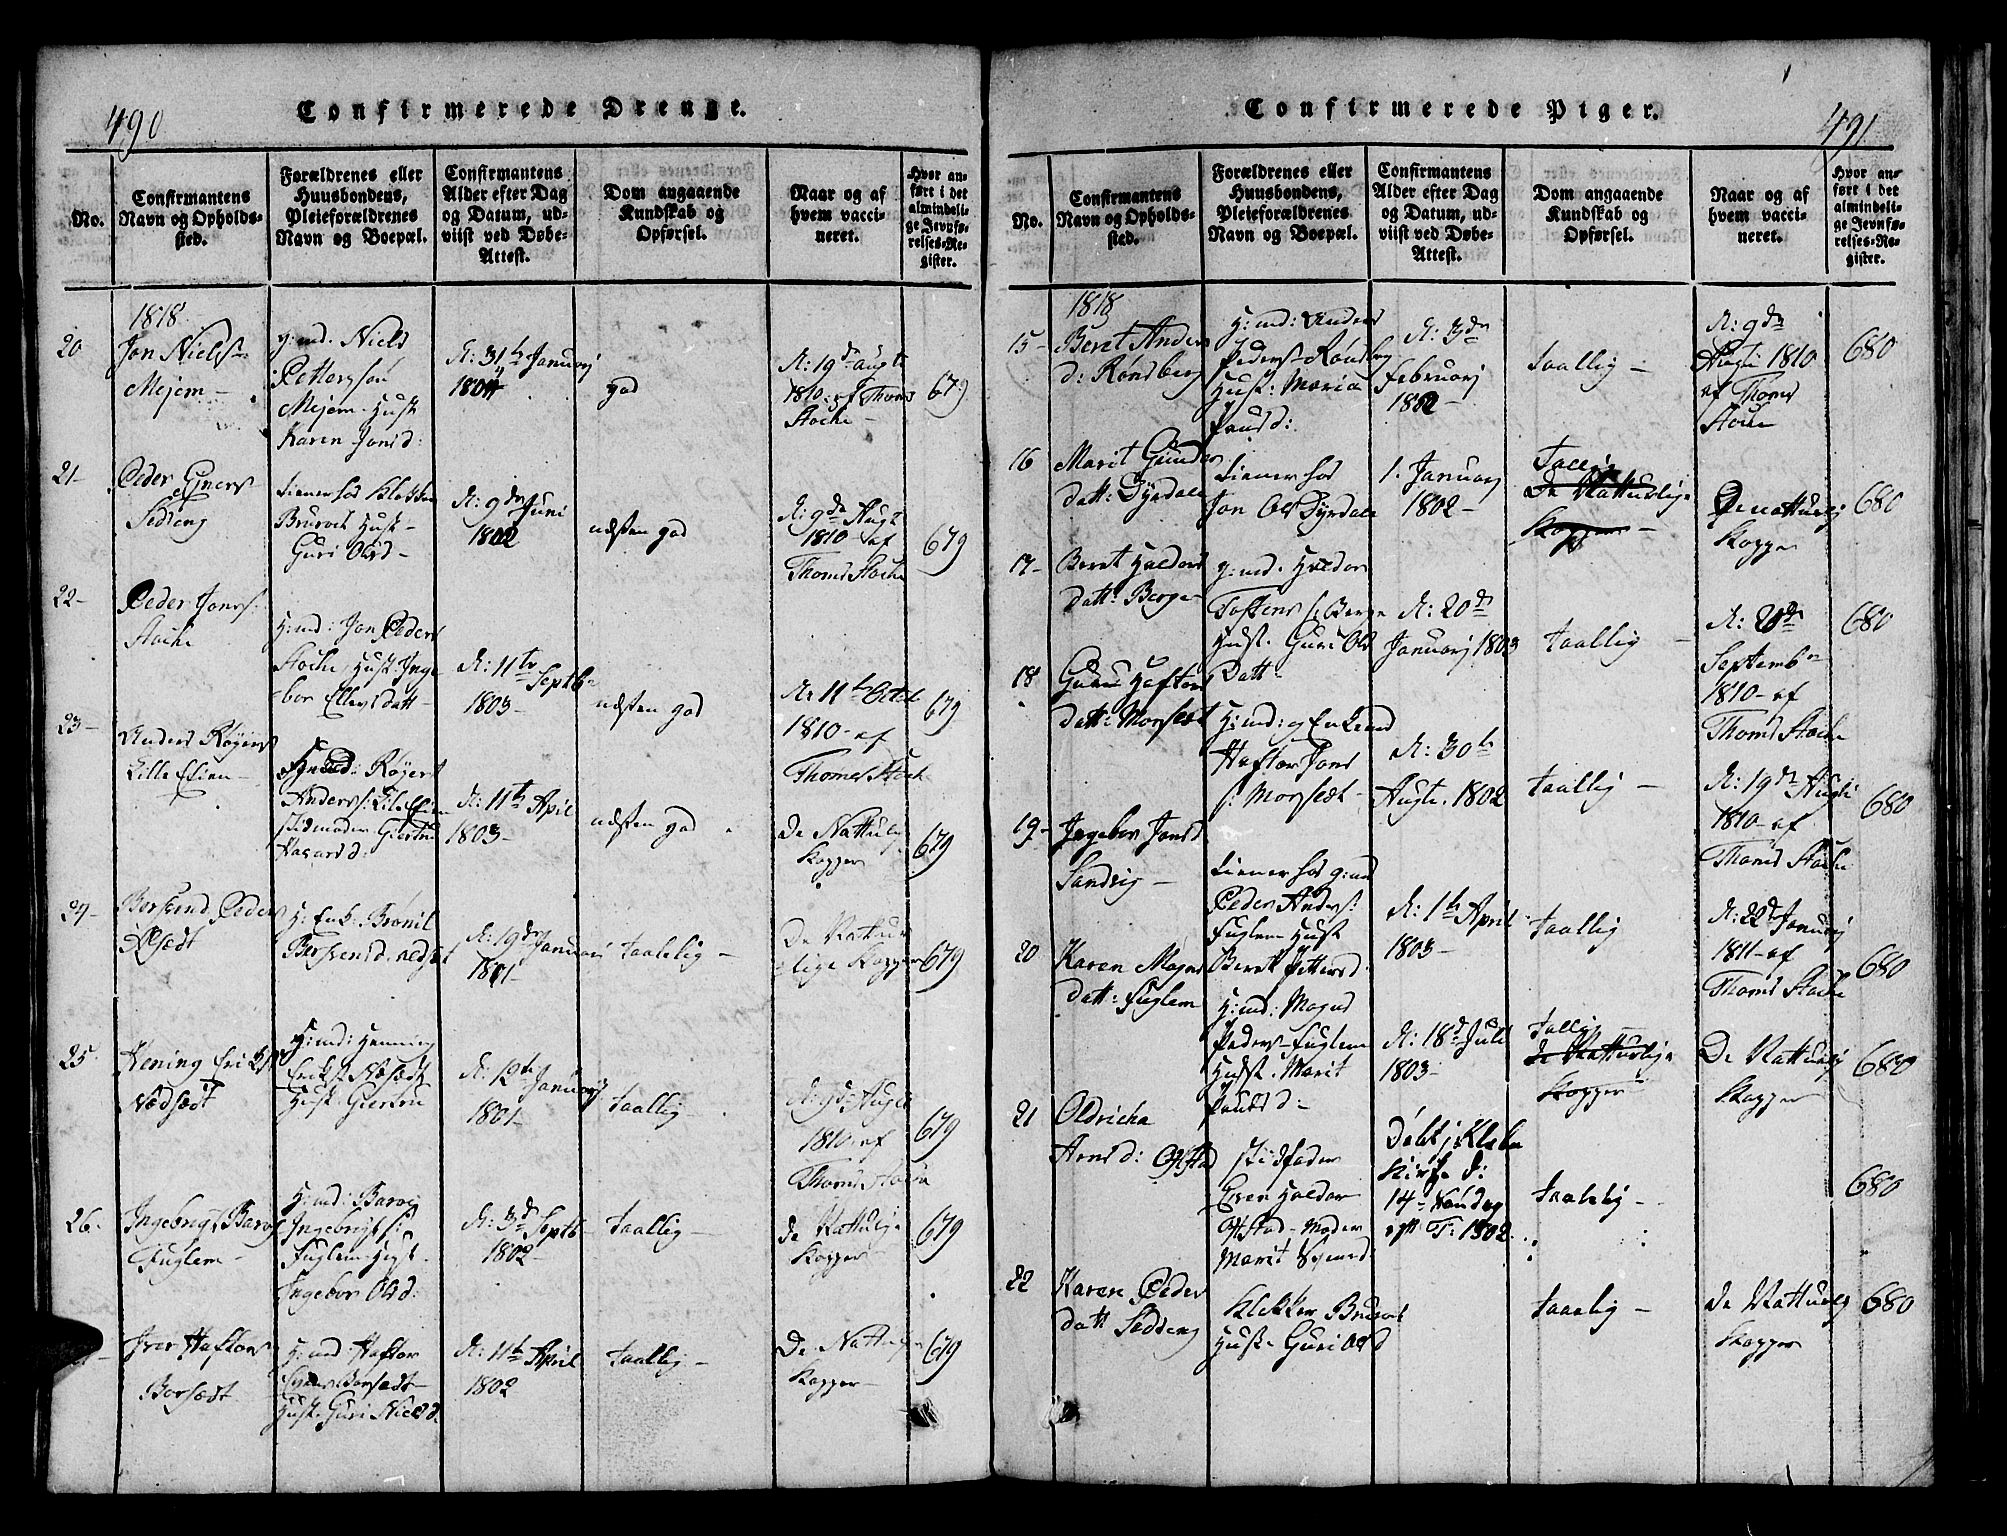 490
Confirmerede Drenge.
No.
Confirmantens
Navn og Opholds-
sted.
Forældrenes eller
Huusbondens,
Pleieforældrenes
Navn og Boepæl.
Confirmantens
Alder efter Dag
og Datum, ud-
viist ved Døbe-
Attest.
Dom angaaende
Kundskab og
Opførsel.
Naar og af
hvem vacci-
neret.
Hvor an-
ført i det
almindeli-
ge Jevnfø-
relses-Re-
gister.
1818
20
Jon Niels
Mejem
Niels
Petterssøn
Mejem Hust
Karen Jonsd:
N: 31 Januarj
1801
god
N: 19d Augt
1810 af Thoms
Stoche
679
21
Peder
Selteng
tiener hos Klokker
Bruvol Hust
Guri Olsd
N: 9de Juni
1802
næsten god
N: 9de Augt
1810 af
Thoms Stoche
679
22
Peder Jons:
Stoche
H:md: Jon Peders
Stoche, Hust: Inge
bor Ellevsdatt
N: 11te Septb
1803
næsten god
N: 11te Octob
1810 af
Thomes Stoche
679
23
Anders Røjers
Lille Elien
Røjert
Anders: Lille Elien
stedmoder Giertru
Havard:
N: 11te April
1803
næsten god
De Nattulig
Kopper
679
24
Peders
H: Enk:
N: 19de Januari
1801
taalelig
De Nattur
lige Kopper
679
25
Hening Eriks
Nedsedt
H:md: Henning
Eriks
Hust: Giertru
N: 12te Januarij
1801
taallig
N: 9de Augt
1810 af
Thoms Stoche
679
26
Ingebrigt Baro
Fuglem
H:md: Baro
Ingebrigts:
Fuglem Hust
Ingebor Olsd:
N: 3de Septb
1802
taallig
de Nattulige
Kopper
679
Iver Haftors
Borsedt
H:md Haftor
Hust: Guri Nielsd
N: 11te April
1802
taallig
De Nattu
Kopper
679
Confirmerede Piger.
491
No.
Confirmantens
Navn og Opholds-
sted.
Forældrenes eller
Huusbondens,
Pleieforældrenes
Navn og Boepæl.
Confirmantens
Alder efter Dag
og Datum, ud-
viist ved Døbe-
Attest.
Dom angaaende
Kundskab og
Opførsel.
Naar og af
hvem vacci-
neret.
Hvor an-
ført i det
almindeli-
ge Jevnfø-
relses-Re-
gister.
1818
15
Beret Anders
d: Rønsberg
H:md: Anders
Peders Rønsberg
Hust: Maria
Pausd:
N: 3de
Februarj
1802
taallig
N: 9de
1810
af Thoms
Stoche
680
16
Marit Gunder
datt: Dyrdale
tiener hos
Jon Ols Dyrdale
1. Januarj
1802
Tallig
De Nattuslige
Kopper
De nattuslig
Kopper
680
17
Beret Haldors
datt: Berge
Haldor
Tostens s: Berge
Hust: Guri Ols
Datt
N: 20de
Januarj 1803
taallig
N: 20de
Septembr
1810 af
Thoms Stoche
680
18
Guru Haftors
datt: Morset
H:md: og Enkemand
Haftor Jons
s: Morset
N: 30te
Augt. 1802
taallig
N: 19de Augti
1810 af
Thoms Stoche
680
19
Ingebor Jonsd
Sandvig
tiener hos g:md
Peder Anders:
Fuglem Hust
Beret Pettersd
N: 1te April
1803
taallig
N: 22de Januarj
1811 af
Thoms Stoche
680
20
Karen Mogns
datt: Fuglem
H:md: Mogns
Peders Fuglem
Hust: Marit
Paulsd:
N: 18de Juli
1803
tallig
de Nattuslige
Kopper
De Nattuslig
Kopper
680
21
Oldricha
Arnsd: Ofstad
stedfader
Even Haldor
Ofstad. Moder
Marit
Døbt j Klæbu
Kirke d:
14de Søndag
eft T: 1802
taalelig
680
22
Karen Peders
datt Selteng
Klokker Bruvol
Hust: Guri Olsd
taalig
De Nattuslig
Kopper
680